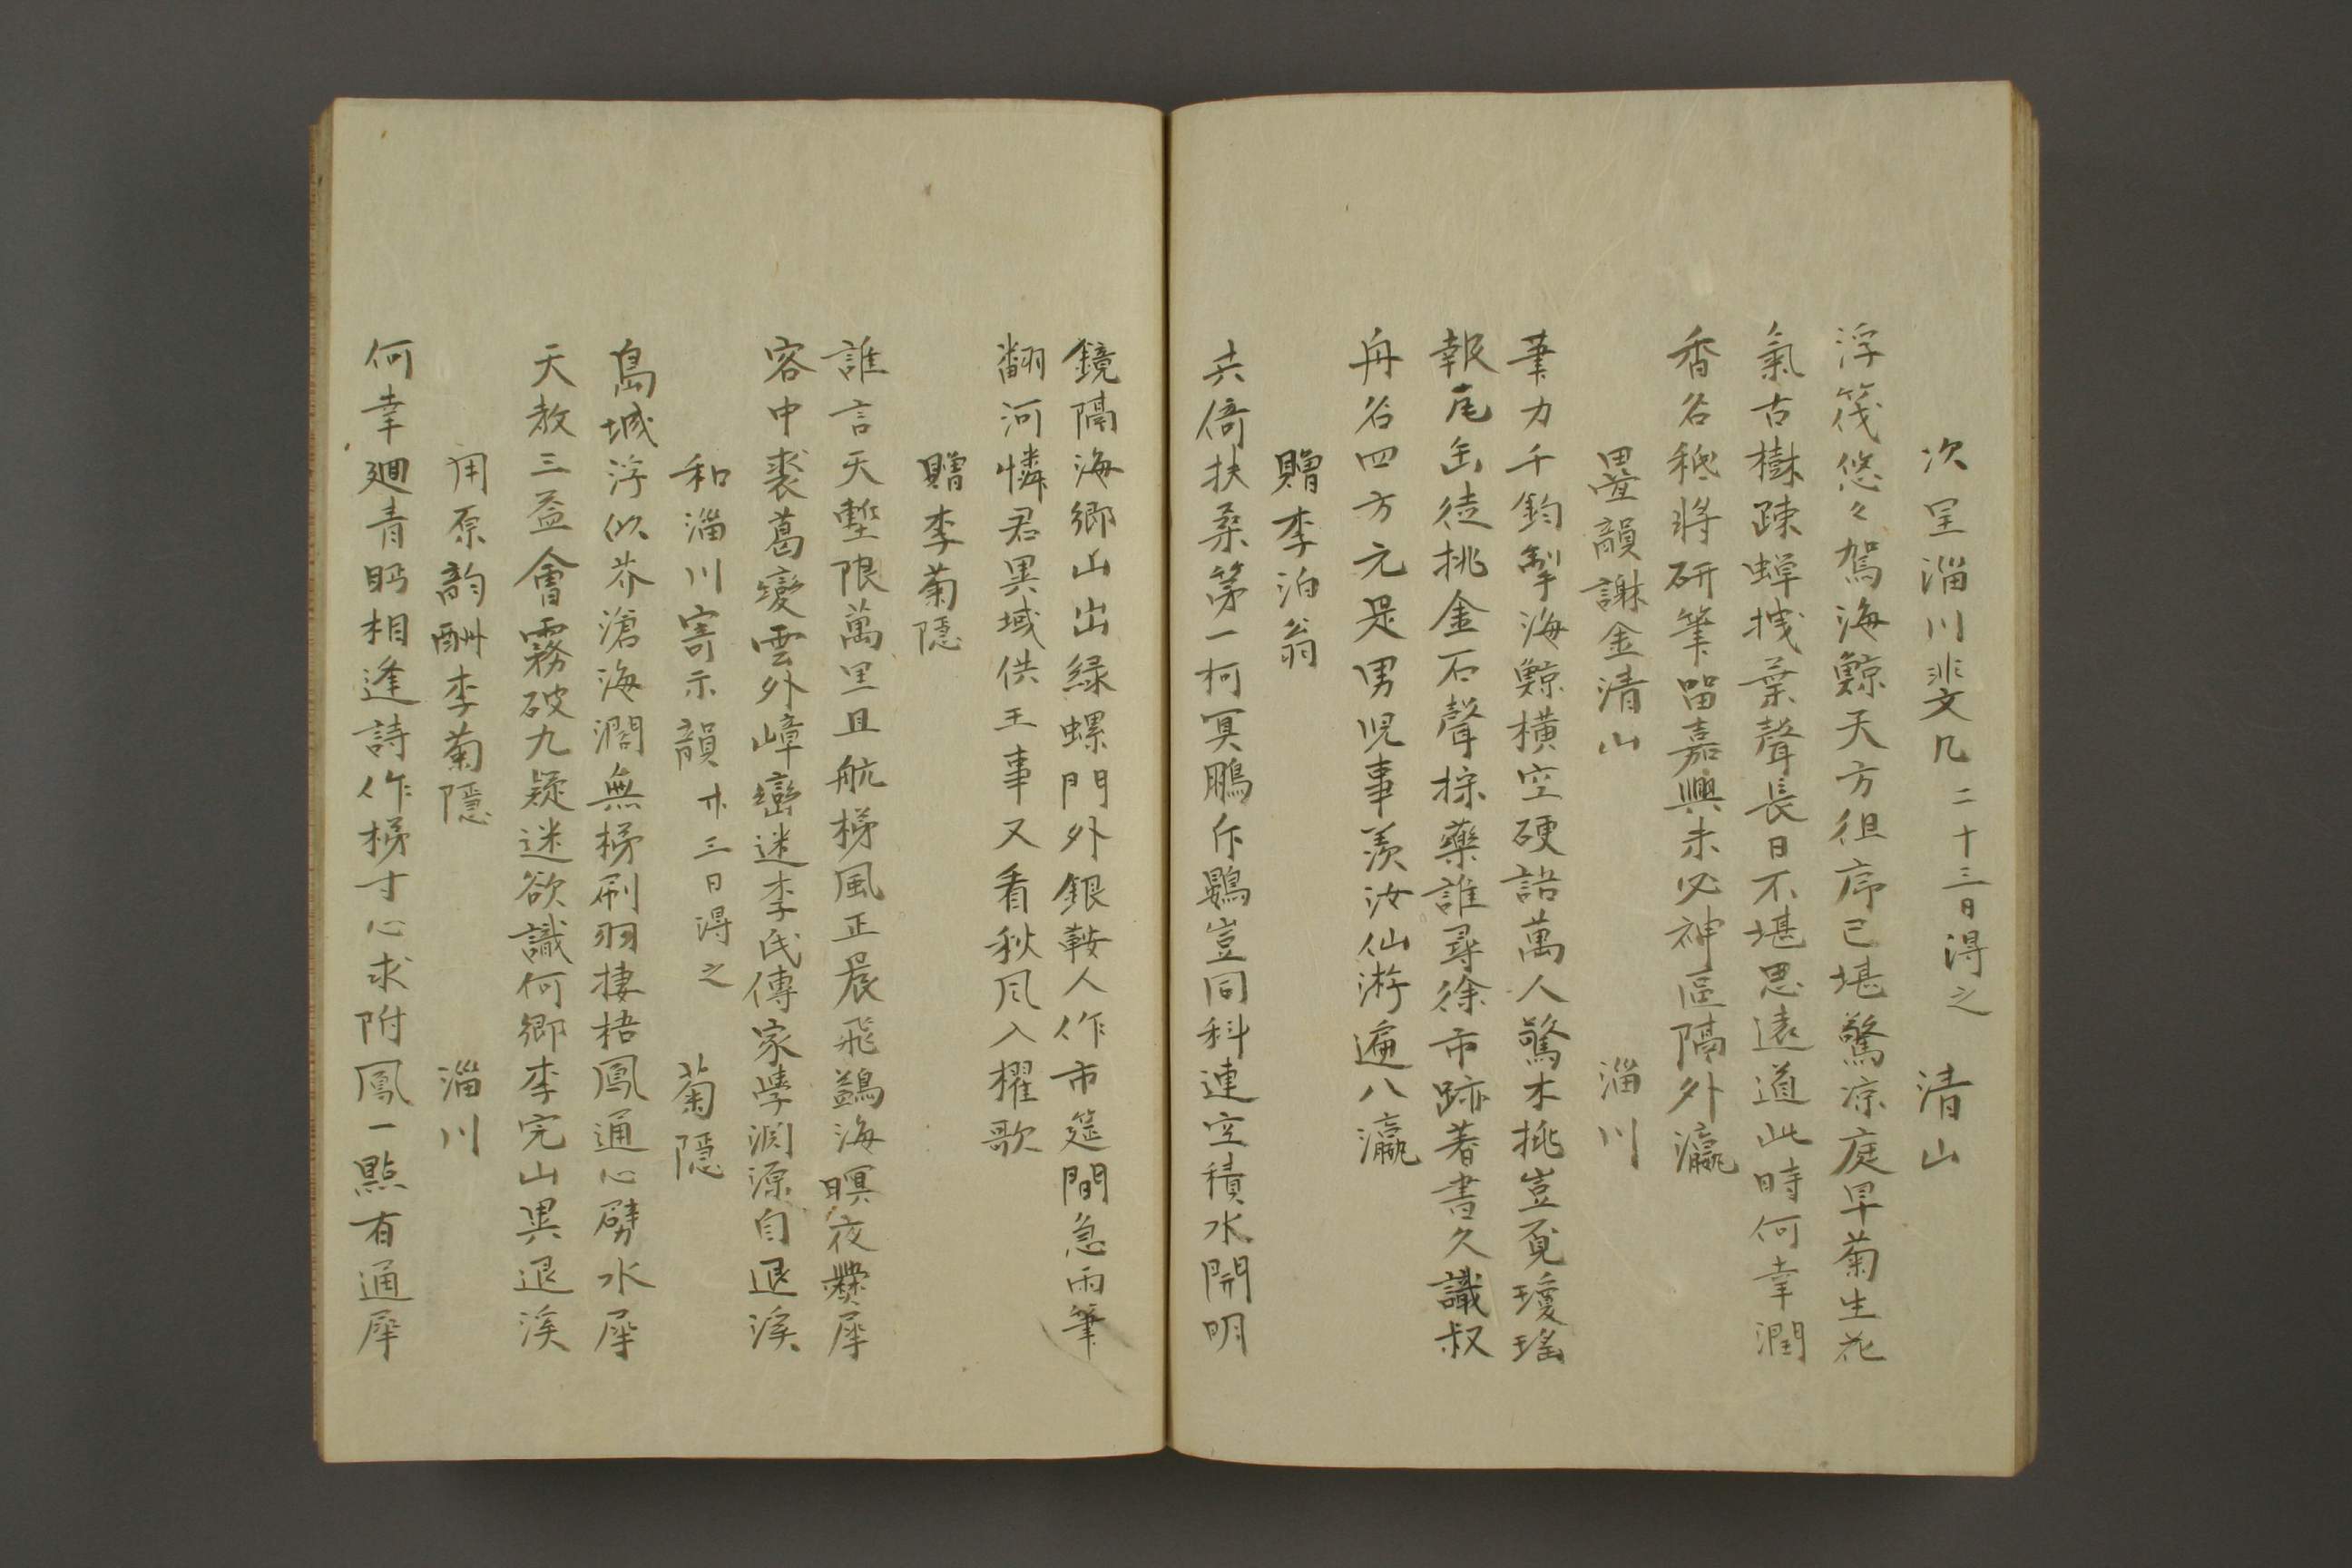 次呈淄川斐文几 二十三日得之 清山
浮筏悠々駕海鯨天方徂序已堪驚凉庭早菊生花
氣古樹踈蟬拽葉聲長日不堪思遠道此時何幸潤
香名秖將研筆留嘉興未必神區隔外瀛
疊韻謝金清山 淄川
筆力千鈞掣海鯨橫空硬語萬人驚木桃豈覓瓊瑤
報瓦缶徒挑金石聲採藥誰尋徐市跡著書久識叔
舟名四方元是男児事羨汝仙游遍八瀛
贈李泊翁
共倚扶桑第一柯冥鵬斥鷃豈同科連空積水開明
鏡隔海鄉山出綠螺門外銀鞍人作市筵間急雨筆
翻河憐君異域供王事又看秋风入櫂歌
贈李菊隱
誰言天塹限萬里且航梯風正晨飛鷁海暝夜爨犀
容中裘葛變雲外嶂巒迷李氏傳家學淵源自退溪
和淄川寄示韻 廿三日得之 菊隱
島城浮似芥滄海濶無梯刷羽捿梧鳳通心劈水犀
天敎三益會霧破九疑迷欲識何鄉李完山異退溪
用原韵酬李菊隱 淄川
何幸廻青眄相逢詩作梯寸心求附鳳一點有通犀